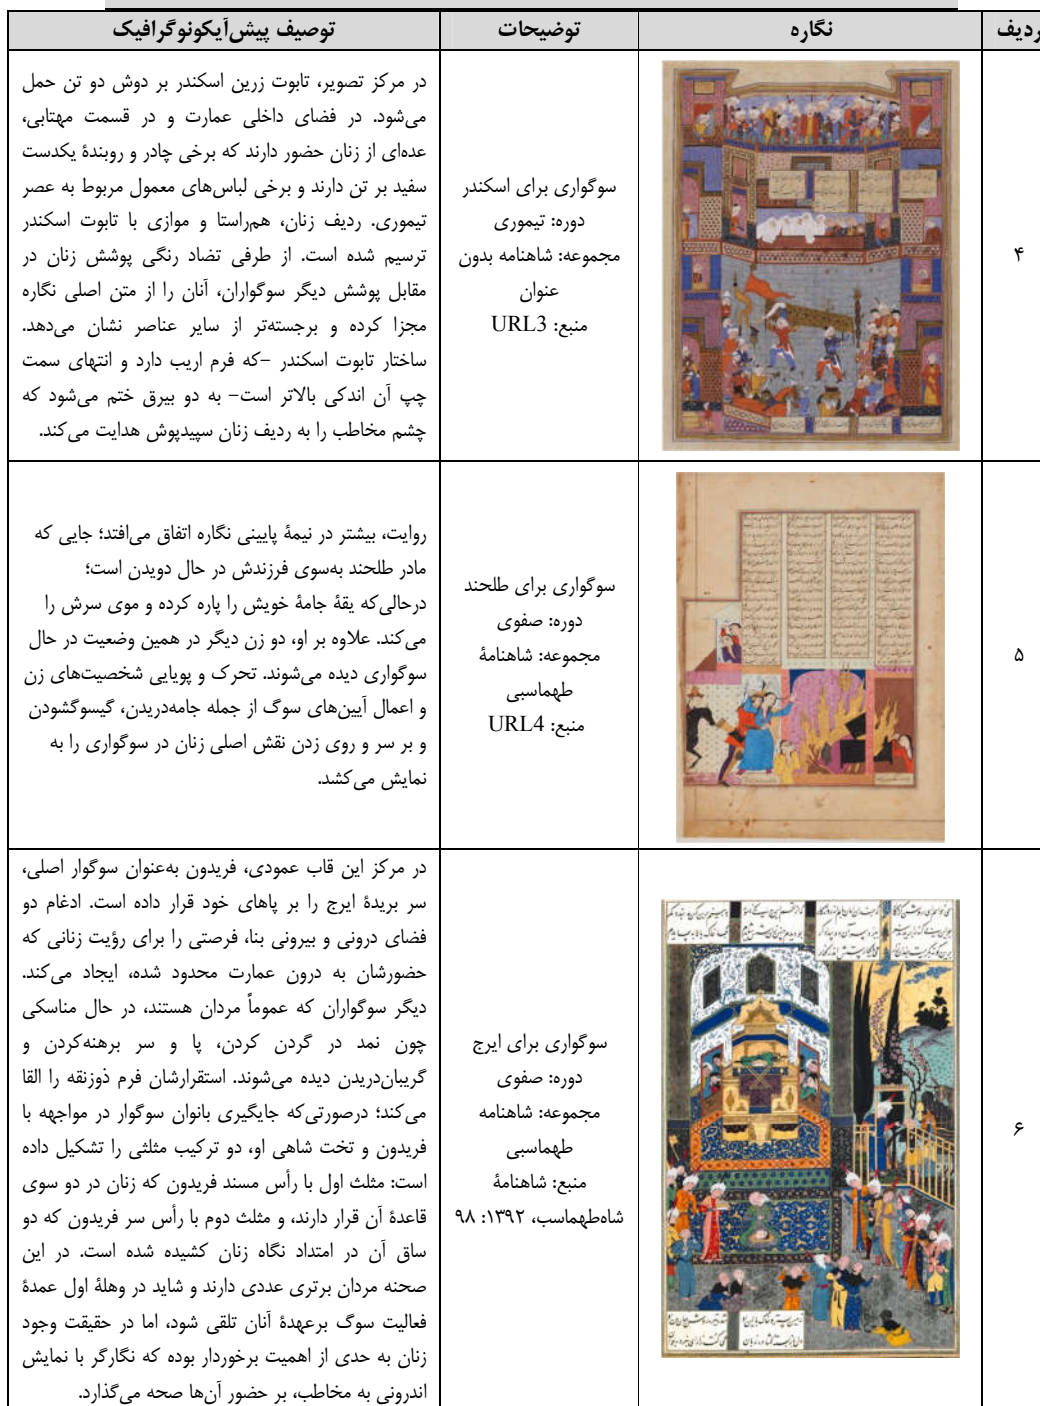 ردیف
نگاره
توضیحات
توصیف پیش‌آیکونوگرافیک
۴
سوگواری برای اسکندر
دوره: تیموری
مجموعه: شاهنامه بدون
عنوان
منبع: URL3
در مرکز تصویر، تابوت زرین اسکندر بر دوش دو تن حمل
می‌شود. در فضای داخلی عمارت و در قسمت مهتابی،
عده‌ای از زنان حضور دارند که برخی چادر و روبندهٔ یکدست
سفید بر تن دارند و برخی لباس‌های معمول مربوط به عصر
تیموری. ردیف زنان، هم‌راستا و موازی با تابوت اسکندر
ترسیم شده است. از طرفی تضاد رنگی پوشش زنان در
مقابل پوشش دیگر سوگواران، آنان را از متن اصلی نگاره
مجزا کرده و برجسته‌تر از سایر عناصر نشان می‌دهد.
ساختار تابوت اسکندر –که فرم اریب دارد و انتهای سمت
چپ آن اندکی بالاتر است– به دو بیرق ختم می‌شود که
چشم مخاطب را به ردیف زنان سپیدپوش هدایت می‌کند.
۵
سوگواری برای طلحند
دوره: صفوی
مجموعه: شاهنامهٔ
طهماسبی
منبع: URL4
روایت، بیشتر در نیمهٔ پایینی نگاره اتفاق می‌افتد؛ جایی که
مادر طلحند به‌سوی فرزندش در حال دویدن است؛
درحالی‌که یقهٔ جامهٔ خویش را پاره کرده و موی سرش را
می‌کند. علاوه بر او، دو زن دیگر در همین وضعیت در حال
سوگواری دیده می‌شوند. تحرک و پویایی شخصیت‌های زن
و اعمال آیین‌های سوگ از جمله جامه‌دریدن، گیسوگشودن
و بر سر و روی زدن نقش اصلی زنان در سوگواری را به
نمایش می‌کشد.
۶
سوگواری برای ایرج
دوره: صفوی
مجموعه: شاهنامه
طهماسبی
منبع: شاهنامهٔ
شاه‌طهماسب، ۱۳۹۲: ۹۸
در مرکز این قاب عمودی، فریدون به‌عنوان سوگوار اصلی،
سر بریدهٔ ایرج را بر پاهای خود قرار داده است. ادغام دو
فضای درونی و بیرونی بنا، فرصتی را برای رؤیت زنانی که
حضورشان به درون عمارت محدود شده، ایجاد می‌کند.
دیگر سوگواران که عموماً مردان هستند، در حال مناسکی
چون نمد در گردن کردن، پا و سر برهنه‌کردن و
گریبان‌دریدن دیده می‌شوند. استقرارشان فرم ذوزنقه را القا
می‌کند؛ درصورتی‌که جایگیری بانوان سوگوار در مواجهه با
فریدون و تخت شاهی او، دو ترکیب مثلثی را تشکیل داده
است: مثلث اول با رأس مسند فریدون که زنان در دو سوی
قاعدهٔ آن قرار دارند، و مثلث دوم با رأس سر فریدون که دو
ساق آن در امتداد نگاه زنان کشیده شده است. در این
صحنه مردان برتری عددی دارند و شاید در وهلهٔ اول عمدهٔ
فعالیت سوگ برعهدهٔ آنان تلقی شود، اما در حقیقت وجود
زنان به حدی از اهمیت برخوردار بوده که نگارگر با نمایش
اندرونی به مخاطب، بر حضور آن‌ها صحه می‌گذارد.